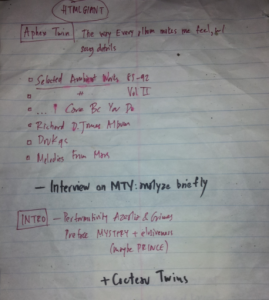 HTMLGIANT
Aphex Twin The way Every Album makes me feel,
song details
Selected Ambient Works 85-92
" Vol II
... I Care Be You Do
Richard D. James Album
Drukqs
Melodies From Mars
— Interview on MTV: analyze briefly
INTRO — Performativity Azealia & Grimes
Preface MYSTERY + elusiveness
(maybe PRINCE)
+ Cocteau Twins